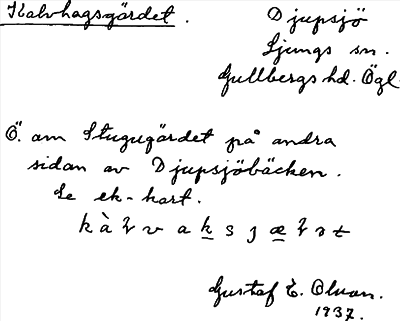 Kalvhagsgärdet.
Djupsjö
Ljungs sn.
Gullbergs hd. Ögl.
Ö. om Stugugärdet på andra
sidan av Djupsjöbäcken.
Se ek-kart.
Gustaf E. Olsson.
1937.